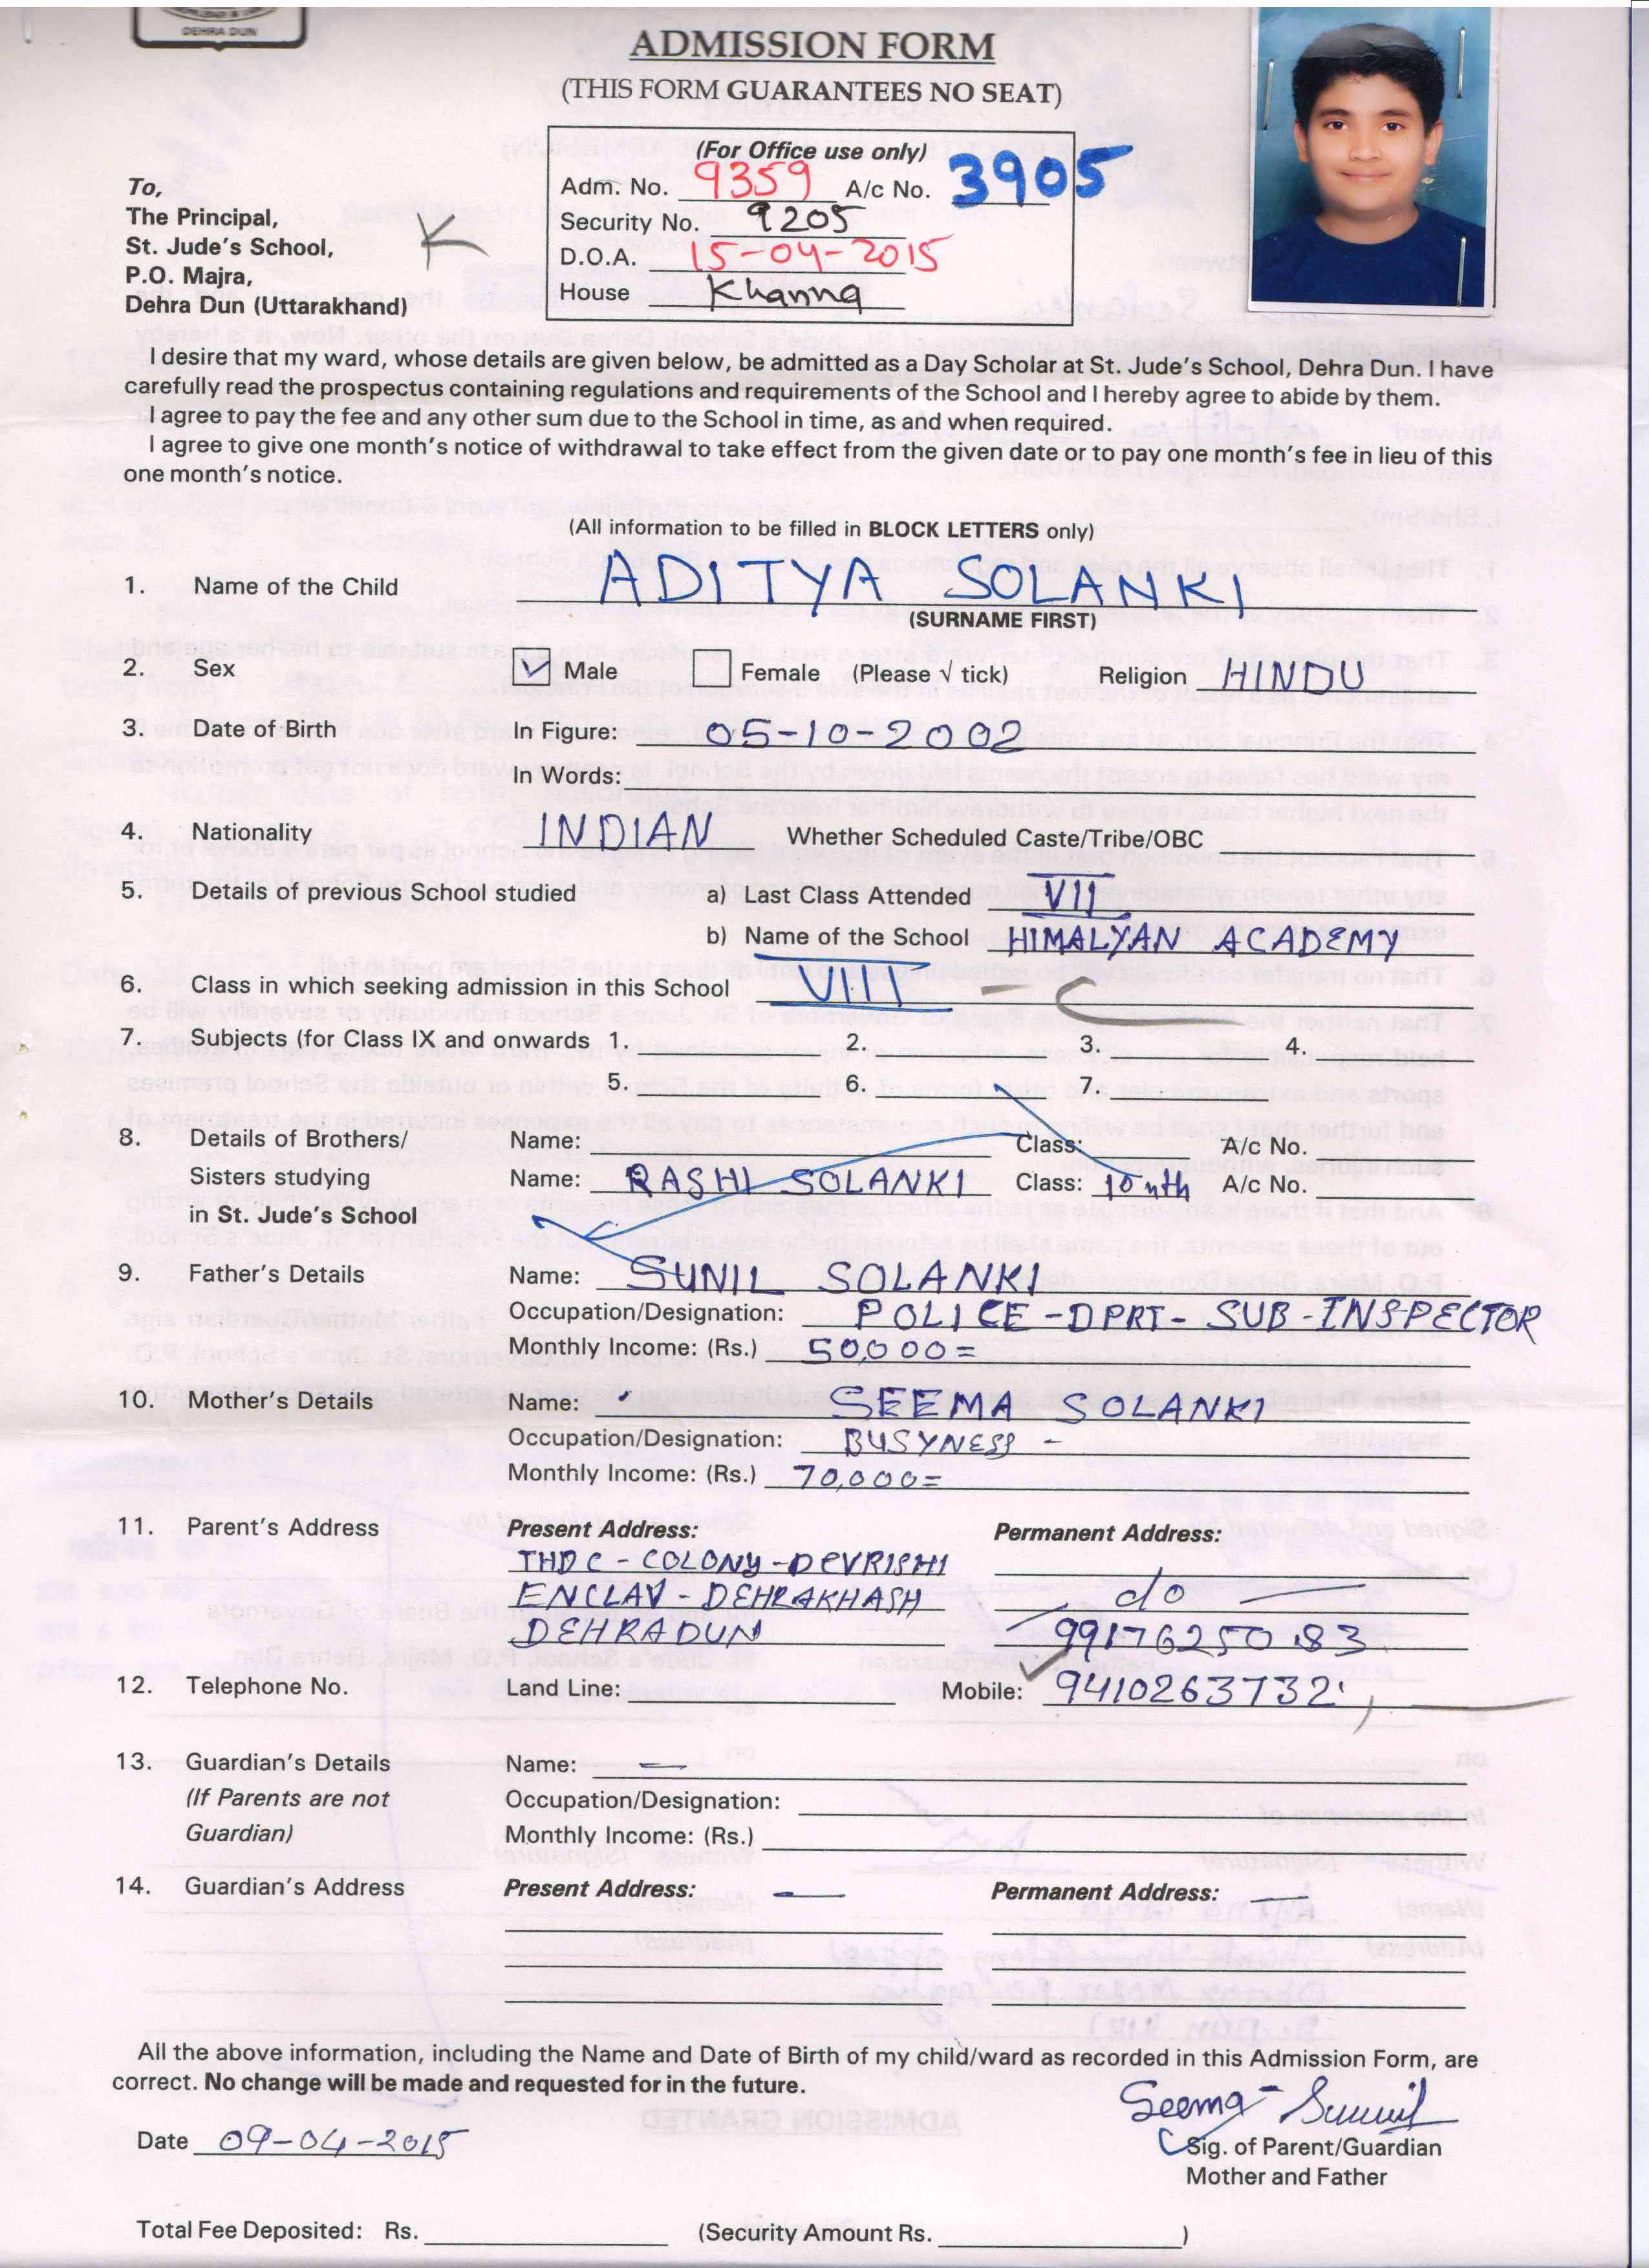 DEHRA DUN
ADMISSION FORM
(THIS FORM GUARANTEES NO SEAT)
(For Office use only)
Adm. No. 9359 A/c No. 3905
Security No. 9205
D.O.A. 15-04-2015
House Khanna
To,
The Principal,
St. Jude's School,
P.O. Majra,
Dehra Dun (Uttarakhand)
K
I desire that my ward, whose details are given below, be admitted as a Day Scholar at St. Jude's School, Dehra Dun. I have
carefully read the prospectus containing regulations and requirements of the School and I hereby agree to abide by them.
I agree to pay the fee and any other sum due to the School in time, as and when required.
I agree to give one month's notice of withdrawal to take effect from the given date or to pay one month's fee in lieu of this
one month's notice.
(All information to be filled in BLOCK LETTERS only)
1. Name of the Child ADITYA SOLANKI
(SURNAME FIRST)
2. Sex Male Female (Please √ tick) Religion HINDU
3. Date of Birth In Figure: 05-10-2002
In Words:
4. Nationality INDIAN Whether Scheduled Caste/Tribe/OBC
5. Details of previous School studied a) Last Class Attended VII
b) Name of the School HIMALYAN ACADEMY
6. Class in which seeking admission in this School VIII - C
7. Subjects (for Class IX and onwards 1. 2. 3. 4.
5. 6. 7.
8. Details of Brothers/ Name: Class: A/c No.
Sisters studying Name: RASHI SOLANKI Class: 10nth A/c No.
in St. Jude's School
9. Father's Details Name: SUNIL SOLANKI
Occupation/Designation: POLICE-DPRT-SUB-INSPECTOR
Monthly Income: (Rs.) 50,000=
10. Mother's Details Name: SEEMA SOLANKI
Occupation/Designation: BUSYNESS -
Monthly Income: (Rs.) 70,000=
11. Parent's Address Present Address: Permanent Address:
THDC-COLONY-DEVRISHI
ENCLAV-DEHRAKHASH do
DEHRADUN 9917625083
12. Telephone No. Land Line: Mobile: 9410263732
13. Guardian's Details Name: —
(If Parents are not Occupation/Designation:
Guardian) Monthly Income: (Rs.)
14. Guardian's Address Present Address: — Permanent Address: —
All the above information, including the Name and Date of Birth of my child/ward as recorded in this Admission Form, are
correct. No change will be made and requested for in the future.
Seema - Sunil
Date 09-04-2015
Sig. of Parent/Guardian
Mother and Father
Total Fee Deposited: Rs. (Security Amount Rs. )